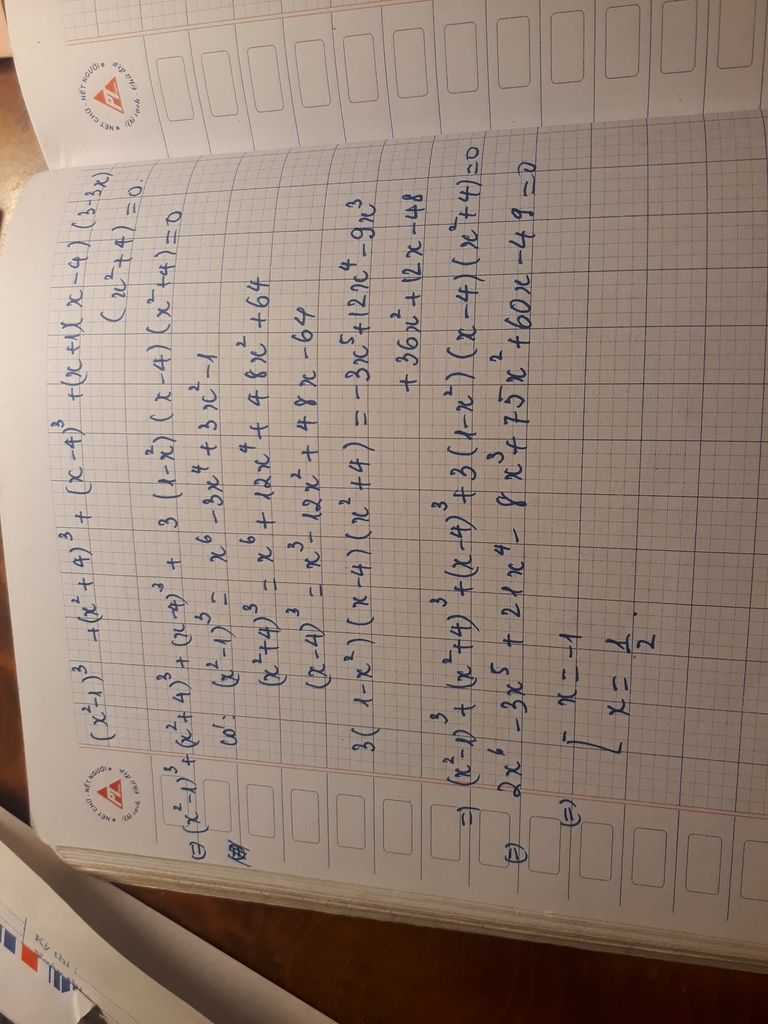 NÉT CHỮ - NẾT NGƯỜI
PL
(x²-1)³ + (x²+4)³ + (x-4)³ + (x+1)(x-4)(3-3x)
(x²+4) = 0.
(=) (x²-1)³ + (x²+4)³ + (x-4)³ + 3(1-x²)(x-4)(x²+4) = 0
có: (x²-1)³ = x⁶ - 3x⁴ + 3x² - 1
(x²+4)³ = x⁶ + 12x⁴ + 48x² + 64
(x-4)³ = x³ - 12x² + 48x - 64
3(1-x²)(x-4)(x²+4) = -3x⁵ + 12x⁴ - 9x³
+ 36x² + 12x - 48
=) (x²-1)³ + (x²+4)³ + (x-4)³ + 3(1-x²)(x-4)(x²+4) = 0
(=) 2x⁶ - 3x⁵ + 21x⁴ - 8x³ + 75x² + 60x - 49 = 0
(=) [ x = -1
x = 1/2.
NÉT CHỮ - NẾT NGƯỜI
PL
Kỳ thi: